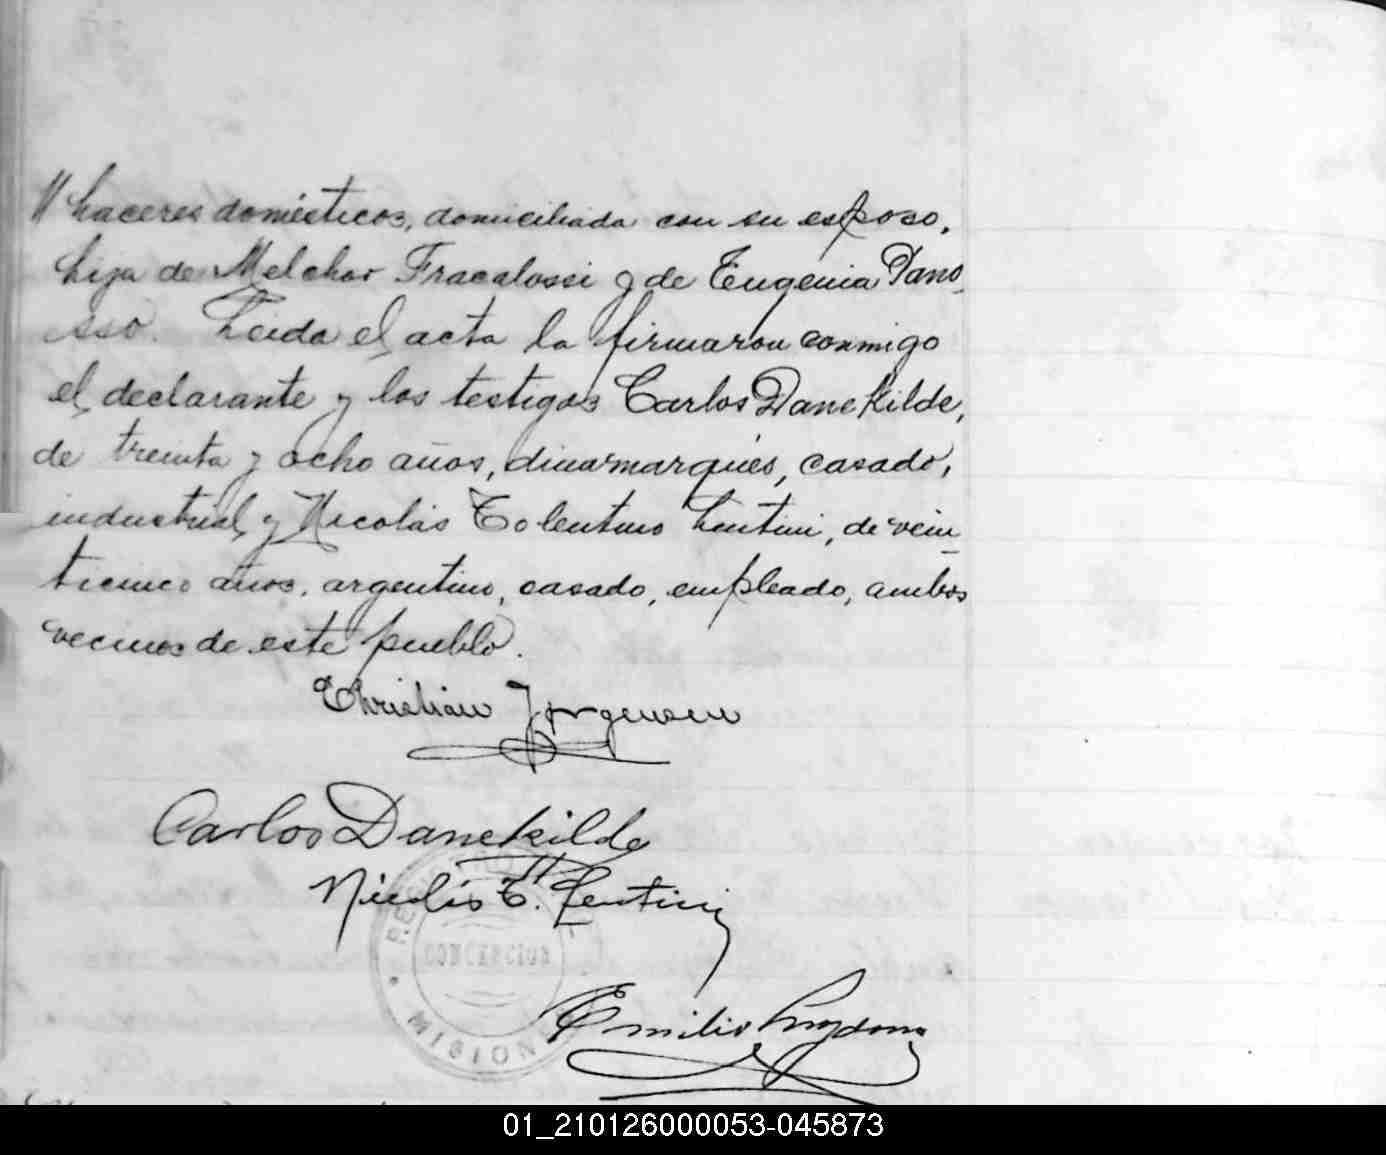 // haceres domésticos, domiciliada con su esposo,
hija de Melchor Fracalossi y de Eugenia Dano_
sso. Leida el acta la firmaron conmigo
el declarante y los testigos Carlos Danekilde,
de treinta y ocho años, dinamarqués, casado,
industrial y Nicolás Tolentino Lentini, de vein_
ticinco años, argentino, casado, empleado, ambos
vecinos de este pueblo.
Christian Jorgensen
Carlos Danekilde
Nicolás T. Lentini
CONCEPCION
MISIONES
Emilio
01_210126000053-045873